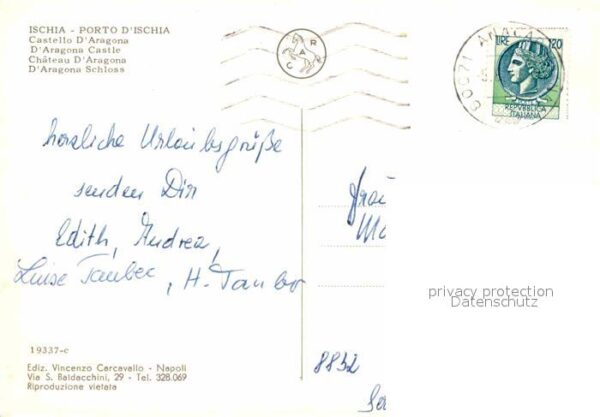 ISCHIA - PORTO D'ISCHIA
Castello D'Aragona
D'Aragona Castle
Château D'Aragona
D'Aragona Schloss
C A R
LIRE 120
REPVBBLICA
ITALIANA
herzliche Urlaubsgrüße
senden Dir
Edith, Andrea,
Luise Tauber, H. Tauber
Frau
privacy protection
Datenschutz
8832
19337-c
Ediz. Vincenzo Carcavallo - Napoli
Via S. Baldacchini, 29 - Tel. 328.069
Riproduzione vietata